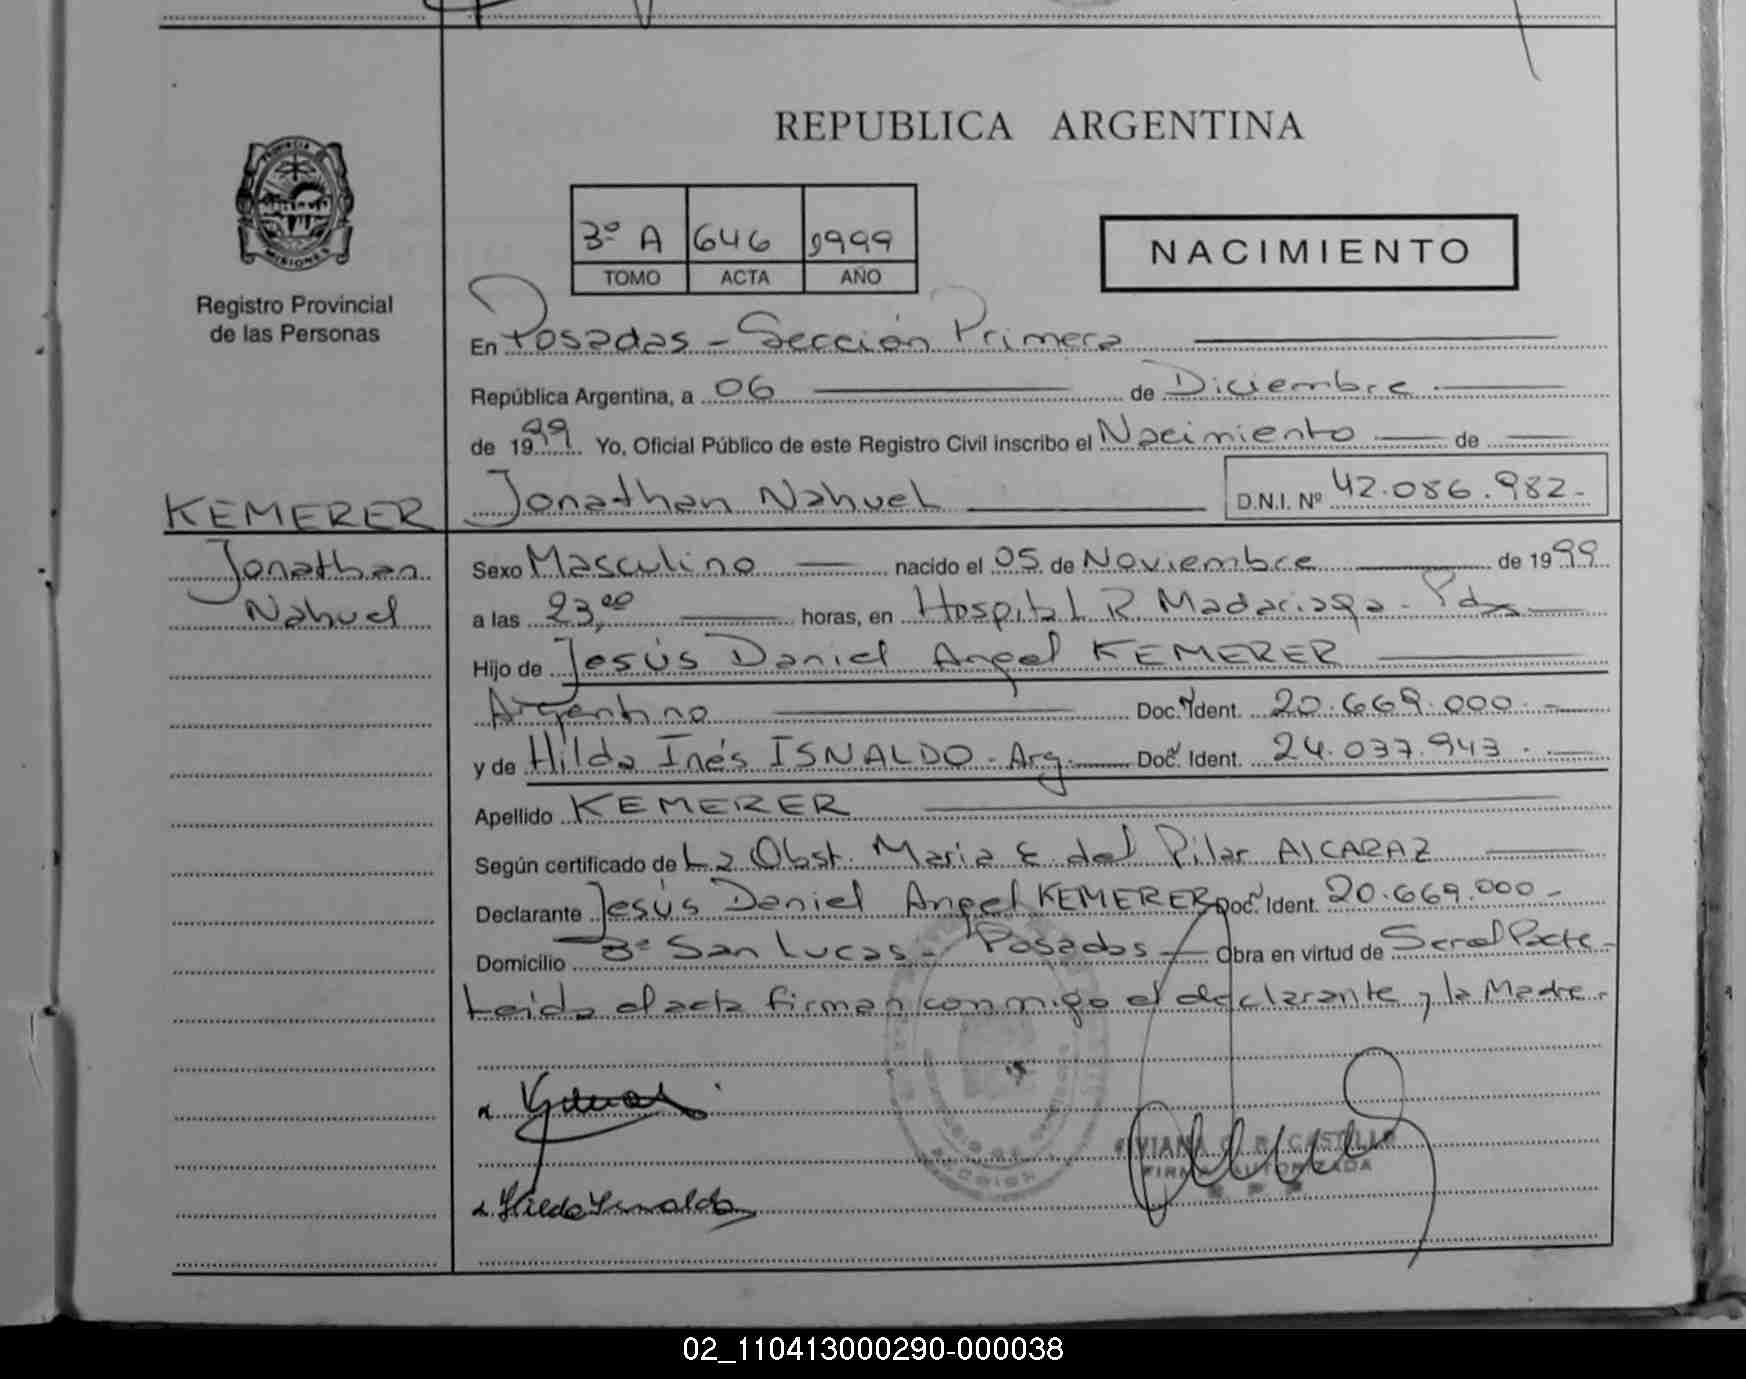 REPUBLICA ARGENTINA
PROVINCIA DE
MISIONES
Registro Provincial
de las Personas
3º A 646 1999
TOMO ACTA AÑO
NACIMIENTO
En Posadas - Sección Primera
República Argentina, a 06 de Diciembre
de 1999 Yo, Oficial Público de este Registro Civil inscribo el Nacimiento de
Jonathan Nahuel D.N.I. Nº 42.086.982-
KEMERER
Jonathan
Nahuel
Sexo Masculino nacido el 05 de Noviembre de 1999
a las 23,00 horas, en Hospital R Madariaga - Pdas
Hijo de Jesús Daniel Angel KEMERER
Argentino Doc. Ident. 20.669.000.-
y de Hilda Inés ISNALDO - Arg. Doc. Ident. 24.037.943.-
Apellido KEMERER
Según certificado de La Obst. Maria E del Pilar AlCARAZ
Declarante Jesús Daniel Angel KEMERER Doc. Ident. 20.669.000-
Domicilio Bº San Lucas - Posadas - Obra en virtud de
Leida el acta firman conmigo el declarante y la Madre.-
Hilda Isnaldo
CASTILLO
FIRMA AUTORIZADA
02_110413000290-000038